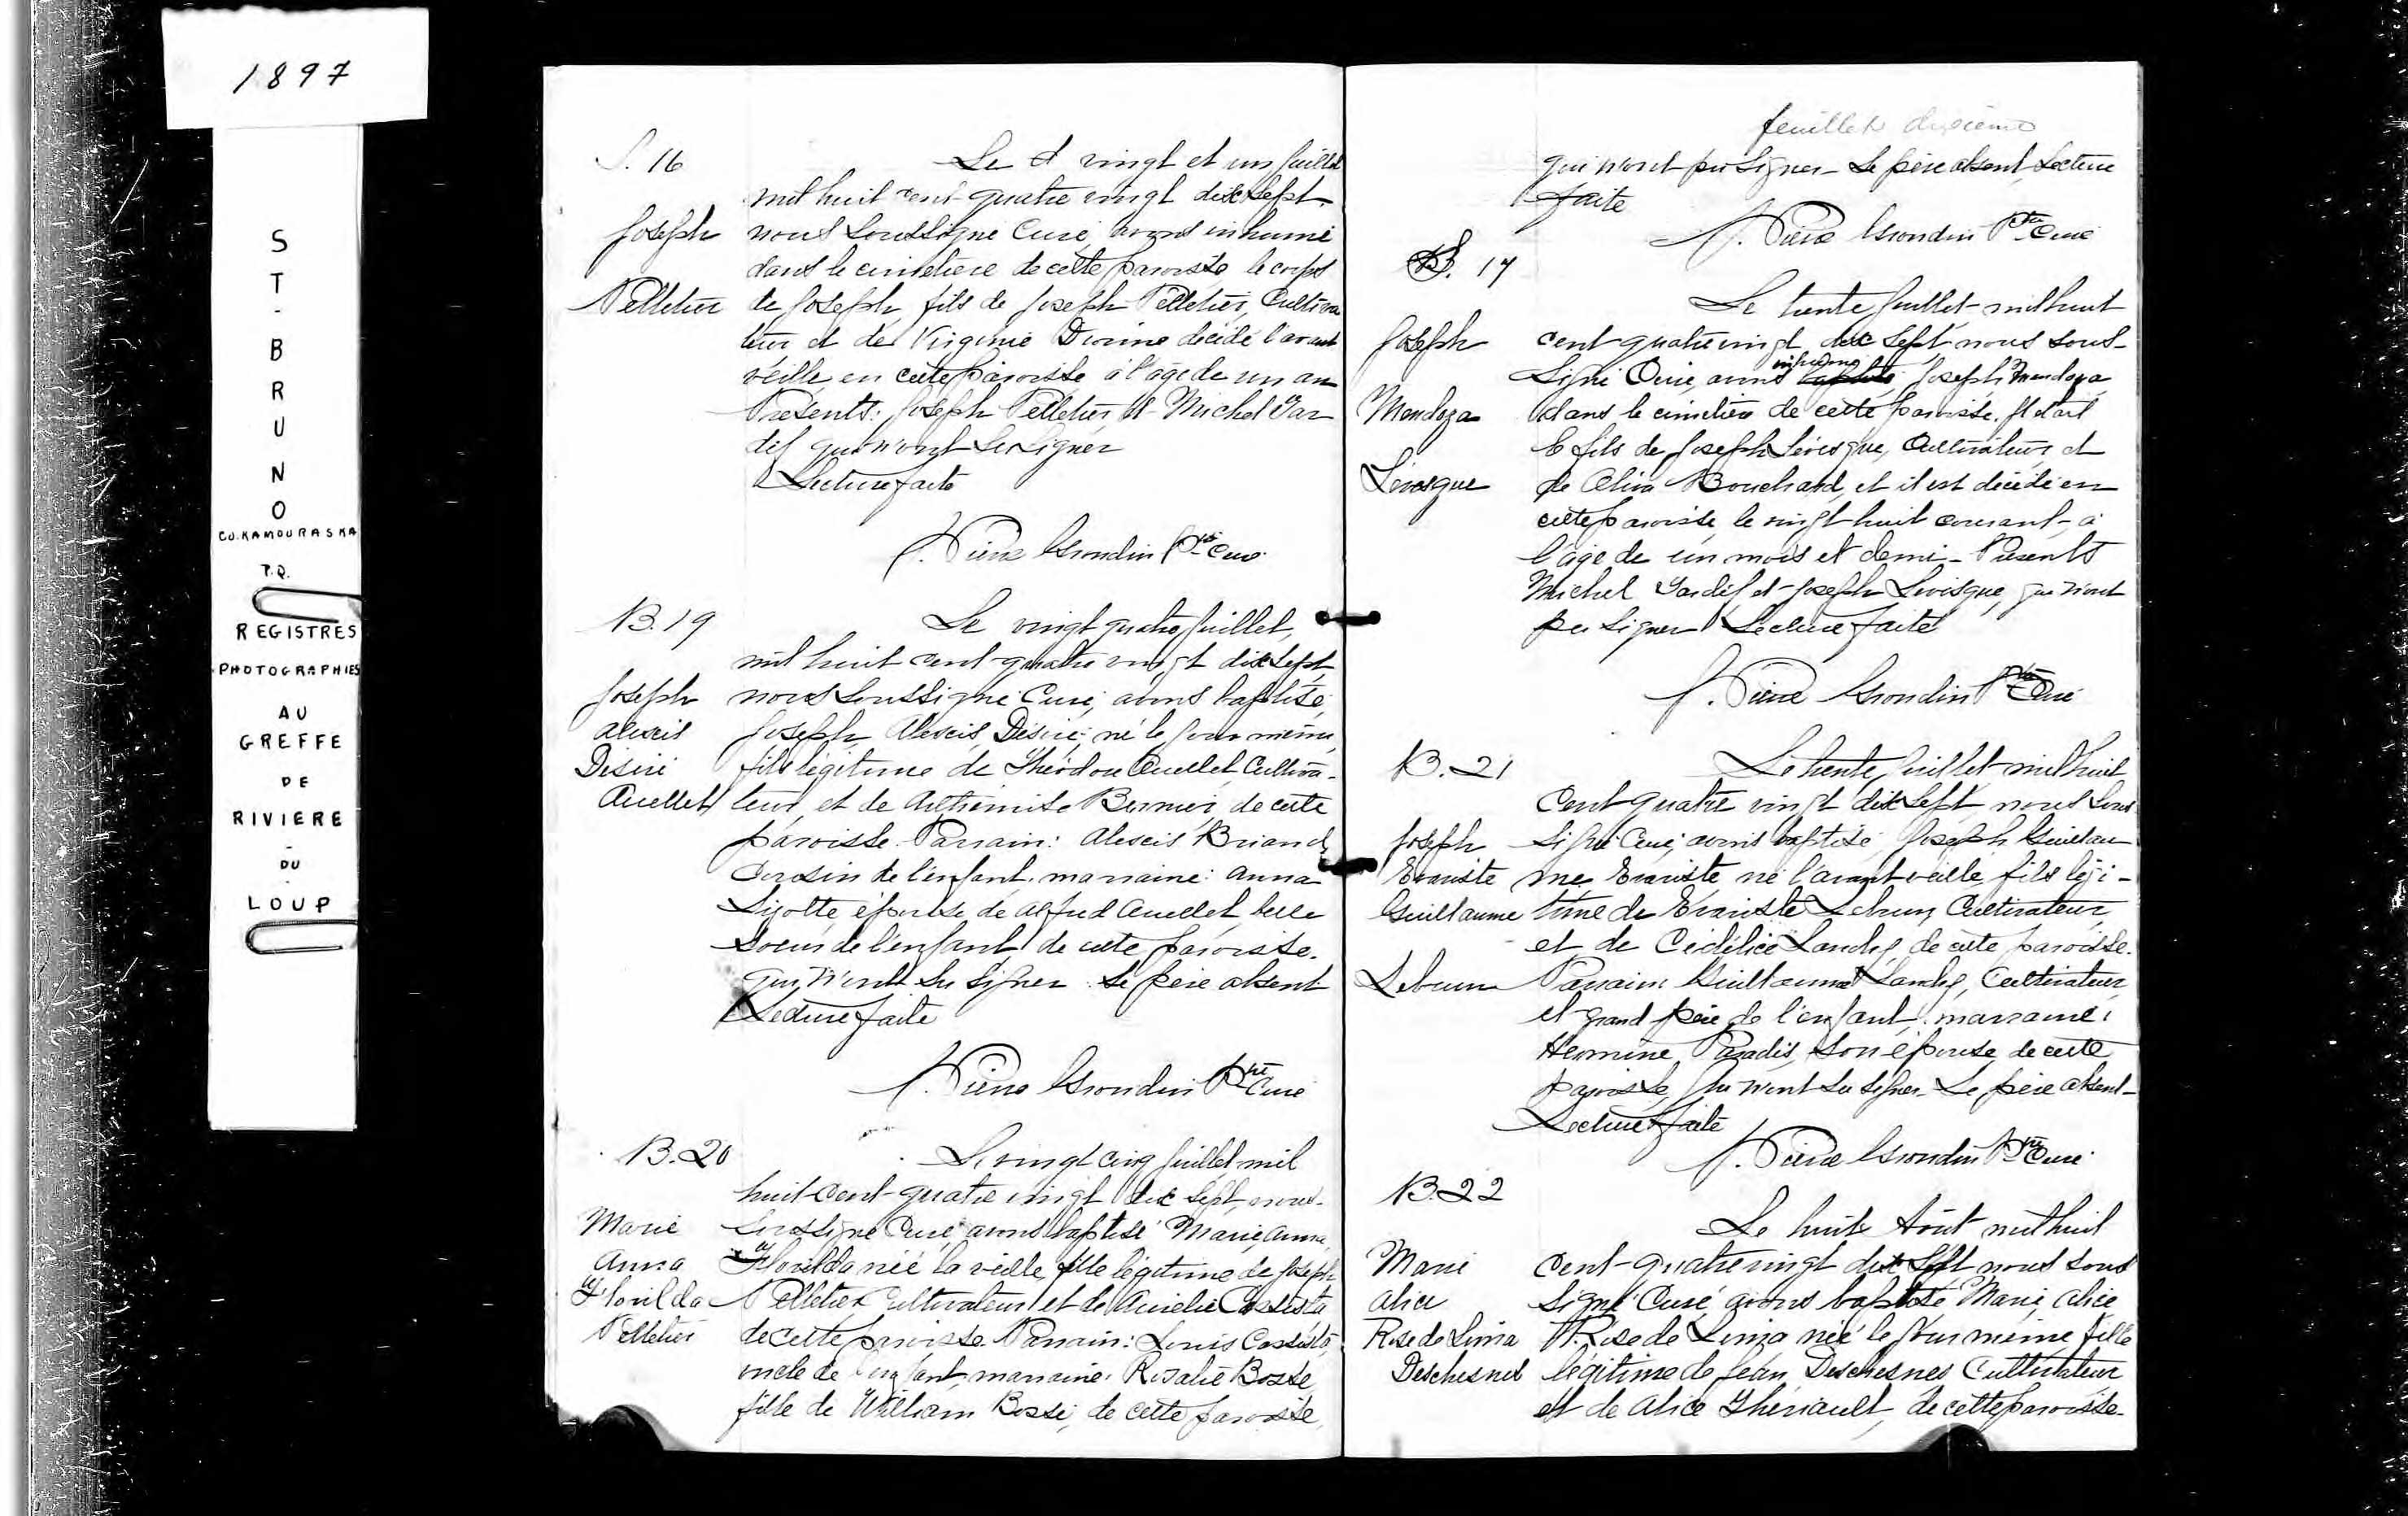 1897
ST-BRUNO
CO. KAMOURASKA
P.Q.
REGISTRES
PHOTOGRAPHIES
AU
GREFFE
DE
RIVIERE
DU
LOUP
S. 16
Joseph
Pelletier
Le vingt et un Juillet
mil huit cent quatre vingt dix sept
nous soussigné Curé, avons inhumé
dans le cimetière de cette paroisse le corps
de Joseph, fils de Joseph Pelletier, Cultiva
teur et de Virginie Dionne décédé l'avant
veille en cette paroisse à l'âge de un an
Présents: Joseph Pelletier, et Michel Tar
dif qui n'ont su signer
Lecture faite
J. Pierre Grondin Ptre Curé
B. 19
Joseph
Alexis
Désiré
Ouellet
Le vingt quatre Juillet,
mil huit cent quatre vingt dix sept
nous soussigné Curé, avons baptisé,
Joseph, Alexis, Désiré, né le jour même,
fils légitime de Théodore Ouellet Cultiva-
teur, et de Arthémise Bernier, de cette
paroisse. Parrain: Alexis Briand,
Cousin de l'enfant, marraine: Anna
Sirotte, épouse de Alfred Ouellet, belle
soeur de l'enfant, de cette paroisse.
qui n'ont su signer. Le père absent
Lecture faite
J. Pierre Grondin Ptre Curé
B. 20
Marie
Anna
Florilda
Pelletier
Le vingt cinq Juillet mil
huit cent quatre vingt dix sept, nous
soussigné Curé avons baptisé Marie, Anna,
Florilda née la veille, fille légitime de Joseph
Pelletier Cultivateur et de Aurélie
de cette paroisse. Parrain: Louis
oncle de l'enfant, marraine: Rosalie Bossé,
fille de William Bossé, de cette paroisse,
feuillet dixième
qui n'ont pu signer - Le père absent, Lecture
faite
J. Pierre Grondin Ptre Curé
S. 17
Joseph
Mendoza
Lévesque
Le trente Juillet mil huit
cent quatre vingt dix sept nous sous-
signé Curé, avons inhumé Joseph Mendoza
dans le cimetière de cette paroisse. Il était
le fils de Joseph Lévesque, Cultivateur et
de Olivia Bouchard, et il est décédé en
cette paroisse, le vingt huit courant - à
l'âge de un mois et demi - Présents
Michel Tardif, et Joseph Levesque, qui n'ont
pu signer Lecture faite
J. Pierre Grondin Ptre Curé
B. 21
Joseph
Evariste
Guillaume
Lebrun
Le trente Juillet mil huit
Cent quatre vingt dix sept, nous sous
signé Curé, avons baptisé, Joseph Guillau
me Evariste né l'avant veille, fils légi-
time de Evariste Lebrun Cultivateur,
et de Cédélice Landry, de cette paroisse.
Parrain: Guillaume Landry, Cultivateur,
et grand père de l'enfant, marraine:
Hermine Paradis, son épouse, de cette
paroisse, qui n'ont su signer - Le père absent -
Lecture faite
J. Pierre Grondin Ptre Curé
B. 22
Marie
Alice
Rose de Lima
Deschesnes
Le huit Août mil huit
cent quatre vingt dix sept nous sous
signé Curé avons baptisé Marie, Alice
Rose de Lima née le jour même, fille
légitime de Jean Deschesnes Cultivateur
et de Alice Thériault, de cette paroisse.